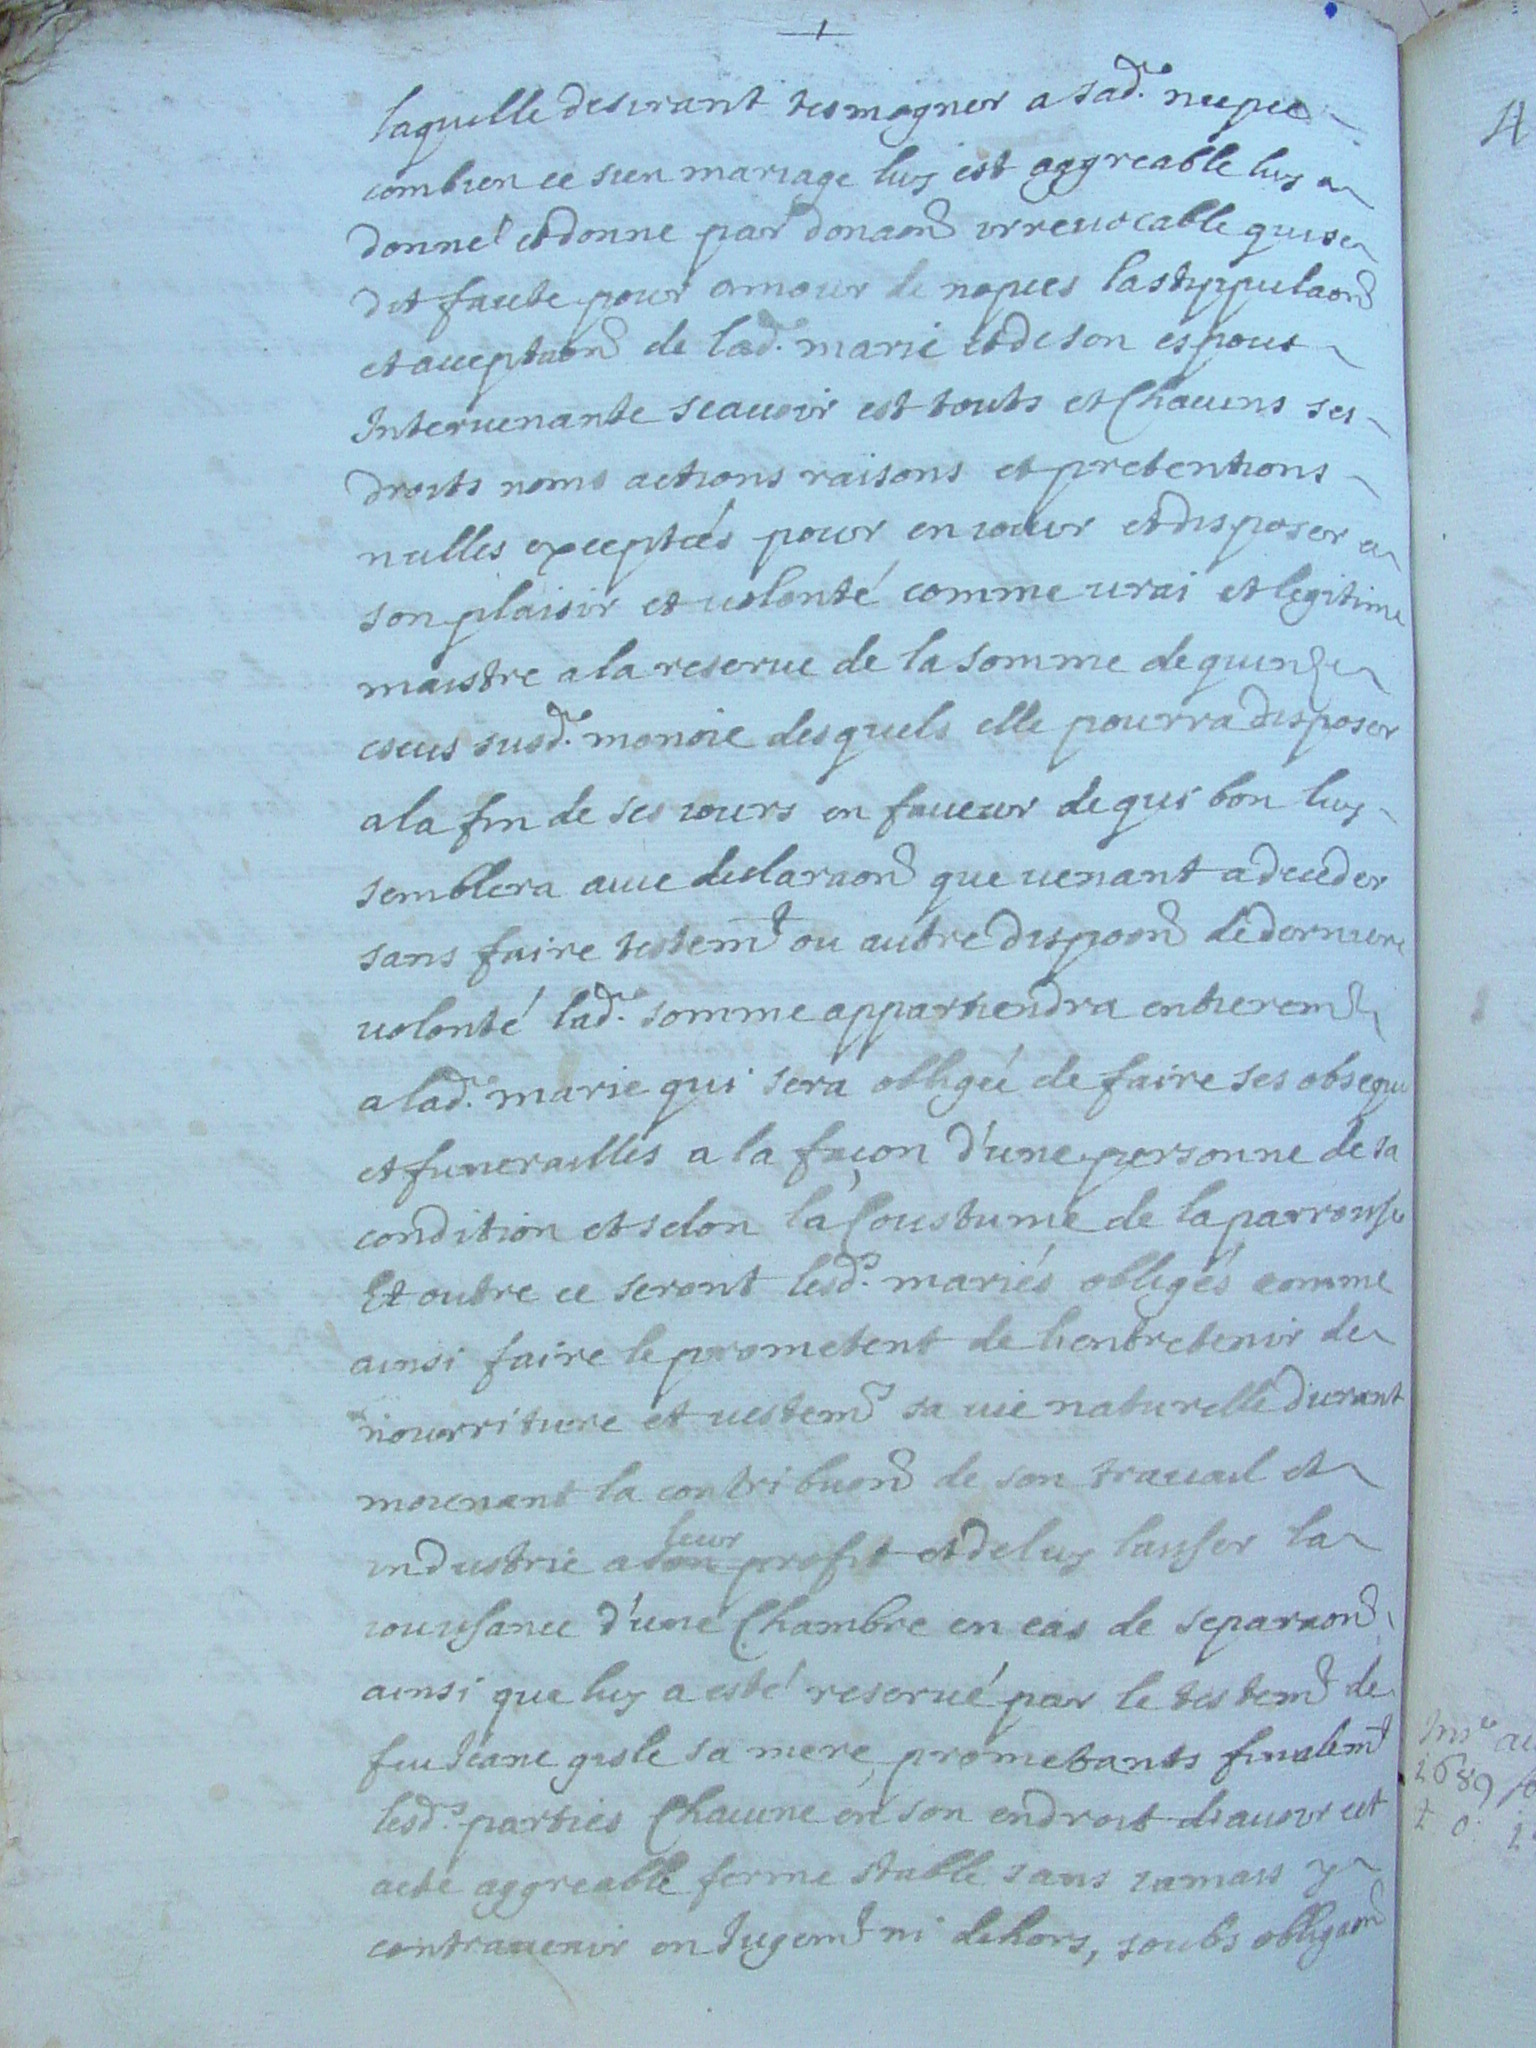 laquelle desirant tesmogner a sad.e niepce
combien ce sien mariage luy est aggreable luy a
donné et donne par donaon irreuocable qui se
dit faite pour amour de nopces la stippulaon
et acceptaon de lad.e marie et de son espoux
Interuenante scauoir est touts et Chacuns ses
droits noms actions raisons et pretentions
nulles exceptées pour en iouir et disposer a
son plaisir et volonté comme vrai et legitime
maistre a la reserue de la somme de quinze
escus susd.e monoie desquels elle pourra disposer
a la fin de ses iours en faueur de qui bon luy
semblera auec declaraon que uenant a deceder
sans faire testemt ou autre dispoon de derniere
uolonté lad.e somme appartiendra entieremt
a lad.e marie qui sera obligée de faire ses obseque
et funerailles a la façon d'une personne de sa
condition et selon la Coustume de la parroisse
Et outre ce seront lesd.s mariés obligés comme
ainsi faire le prometent de l'entretenir de
nourriture et uestems sa uie naturelle durant
moienant la contribuon de son trauail et
industrie a leur profit et de luy laisser la
iouissance d'une Chambre en cas de separaon
ainsi que luy a esté reserué par le testemt de
feu Jeane gisle sa mere, prometants finalemt
lesd.s parties Chacune en son endroit d'auoir cet
acte aggreable ferme stable sans iamais y
contreuenir en Jugemt ni dehors, soubs obligaon